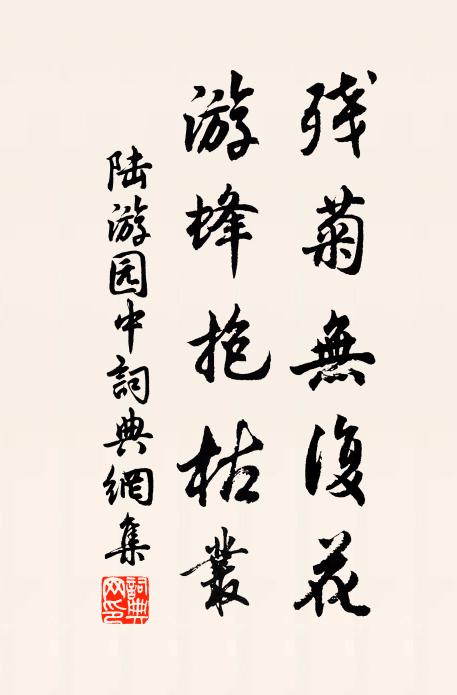 残菊無復花
游蜂抱枯叢
陆游园中詞典網集
詞典网印